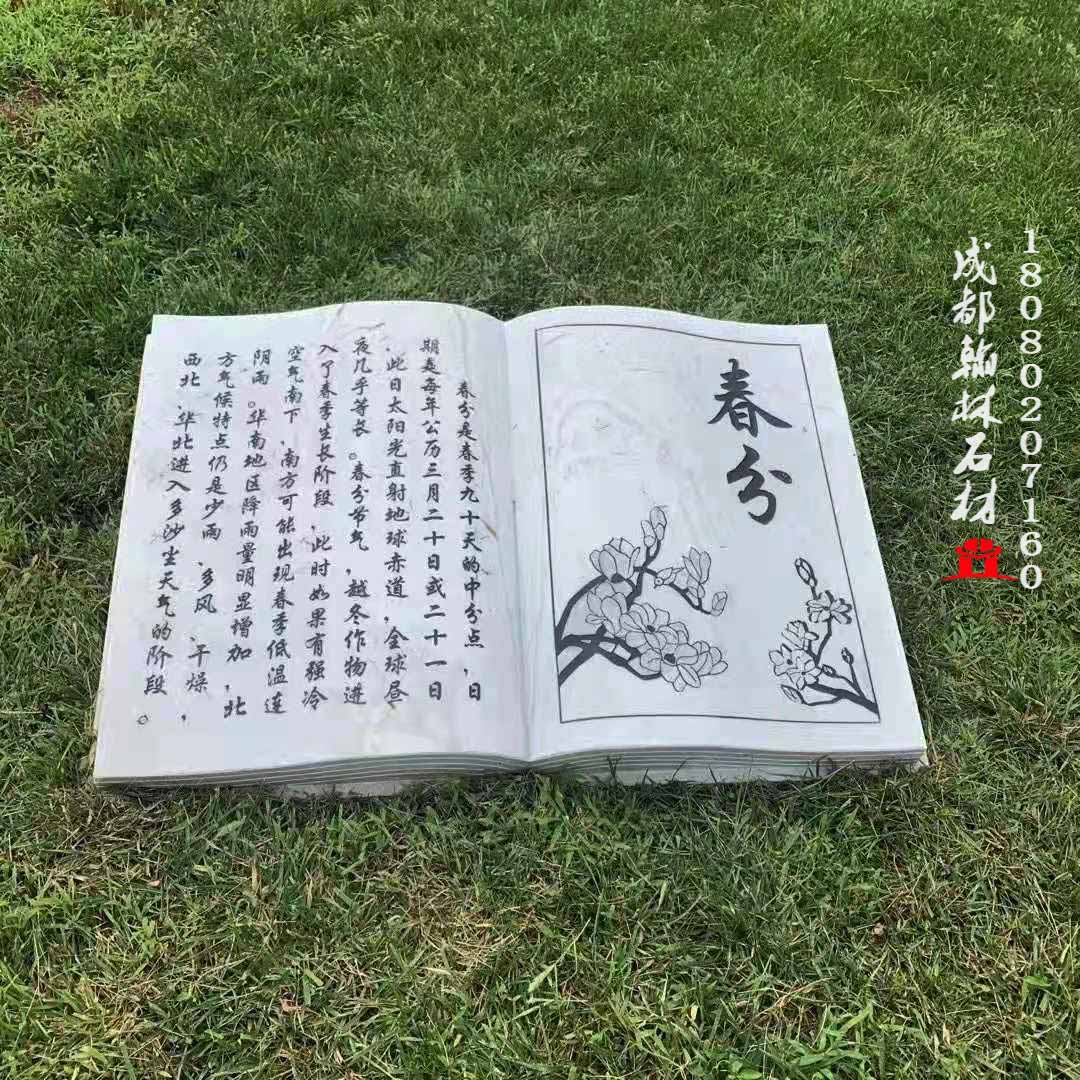 春分
春分是春季九十天的中分点，日
期是每年公历三月二十日或二十一日
，此日太阳光直射地球赤道，全球昼
夜几乎等长。春分节气，越冬作物进
入了春季生长阶段，此时如果有强冷
空气南下，南方可能出现春季低温连
阴雨。华南地区降雨量明显增加，北
方气候特点仍是少雨、多风、干燥，
西北、华北进入多沙尘天气的阶段。
18080207160
成都翰林石材